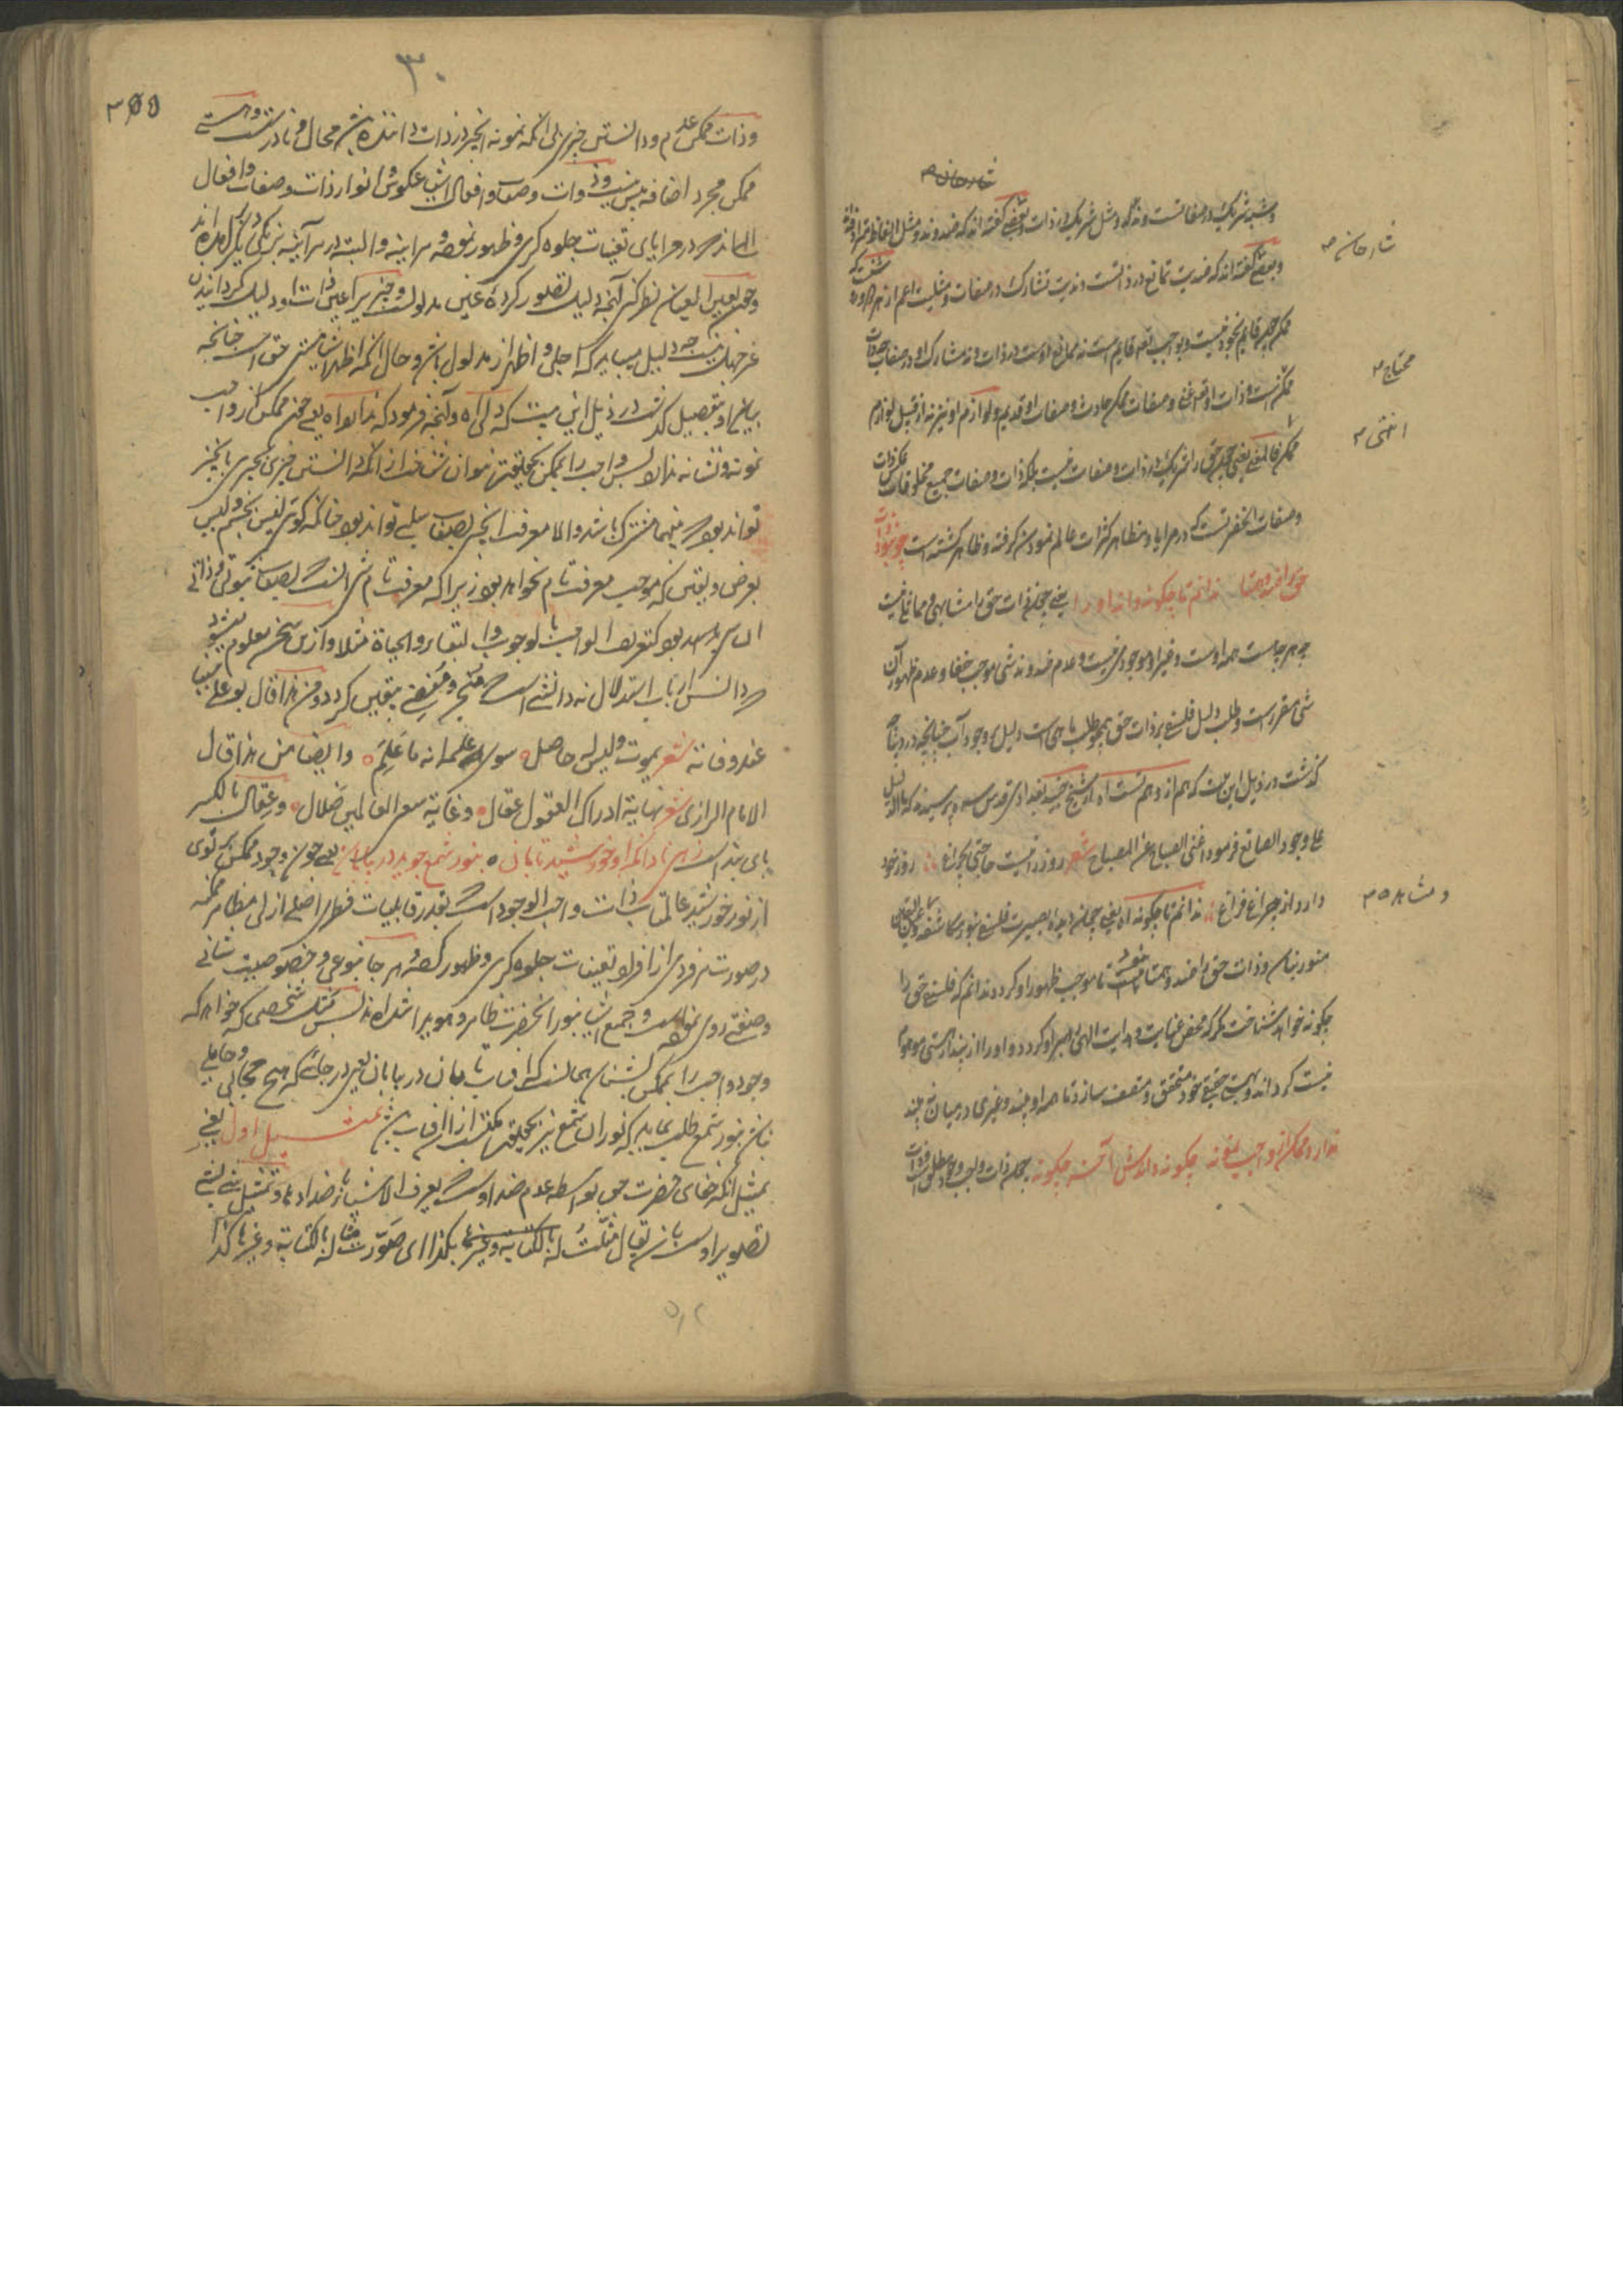 شارحان ۳
و شبیه شریک در صفاتست و ند و مثل شریک در ذات و بعضی گفته اند که ضد و ند و مثل الفاظ مترادفه
و بعضی گفته اند که ضدیت تمانع در ذاتست و ندیت تشارک در صفات و مثلیت اعم از هر دو
شارحان ۳
ممکن چیز قایم بخود نیست و بواجب تعالی قایم است نه مانع اوست در ذات و نه مشارک او در صفات
محتاج ۳
ممکنست و ذات او و صفات ممکن حادث و صفات او قدیم و لوازم او نیز نه از قبیل لوازم
انتهی ۳
ممکن یعنی حق را شریک در ذات و صفات نیست بلکه ذات و صفات جمیع مخلوقات عکس ذات
و صفات آنحضرتست که در مرایا و مظاهر کثرات عالم نمودن گرفته و ظاهر گشته است چو نبود ذات
حق را ضد و همتا ندانم تا چگونه داند او را یعنی چون ذات حق را مشابهی و مانعی نیست
چه هر چه هست همه اوست و غیر او موجودی نیست و عدم ضد و ند شی موجب خفا و عدم ظهور آن
شی مقرر است و طلب دلیل فلسفی بر ذات حق همچو طلب ماهی است دلیل بر وجود آب چنانچه در دیباچه
گذشت در ذیل این بیت که هم از وهم تست اه از شیخ جنید بغدادی قدس سره پرسیدند که ما الدلیل
علی وجود الصانع فرمود اغنی الصباح عن المصباح شعر روز را نیست حاجتی بچراغ روز خود
دارد از چراغ فراغ ندانم تا چگونه اه یعنی چون دیده بصیرت فلسفی بنور مکاشفه و عین الیقین
و مشاهده ۳
منور نباشد و ذات حق را ضد و همتا نیست تا موجب ظهور او گردد ندانم که فلسفی حق را
چگونه خواهد شناخت مگر که محض عنایت و هدایت الهی رهبر او گردد و او را از پندار هستی موهوم
نیست گرداند و بهستی حقیقی خود متحقق و متصف سازد تا همه او بیند و غیری در میان نبیند
ندارد ممکن از واجب نمونه چگونه دانیش آخر چگونه چون ذات واجب وجود مطلق است
۳۰
وذات ممکن عدم و دانستن چیزی بی آنکه نمونه آنچیز در ذات داننده باشد محال و نادر است و هستی
ممکن مجرد اضافه بیش نیست و ذوات و صفات و افعال اشیا عکوس و انوار ذات و صفات و افعال
الهی اند که در مرایای تعینات جلوه گری و ظهور نموده و هر آینه والبته در هر آینه برنگی دیگر نمایان اند
و چون بعین الیقین نظر کنی آنچه دلیل تصور کرده عین مدلولست و چیزیرا عین ذات او دلیل گردانیدن
غرضیکه نیست چه دلیل میباید که اجلی و اظهر از مدلول باشد و حال آنکه اظهر اشیا هستی حق است چنانچه
بیان او بتفصیل گذشت در ذیل این بیت که دلی اه و آنچه فرمود که ندارد اه یعنی چون ممکن را از واجب
نمونه و نشانه نباشد پس واجب را بممکن بحقیقت نتوان شناخت از آنکه دانستن چیزی بچیزی بآنچیز
تواند بود که بینهما مشترک باشد والا معرفت آنچیز بصفات سلبی تواند بود چنانکه گوئی لیس بجسم و لیس
بعرض و یقین که موجب معرفت تام نخواهد بود زیرا که معرفت تام شی آنست که بصفات ثبوتی و ذاتی
آن شی باشد بود کتعریف الواجب بالوجوب و البقاء و الحیاة مثلا و ازین سخن معلوم میشود
که دانش ارباب استدلال نه دانشی است که منتج و مفضی بیقین گردد و من هذا قال بوعلی سینا
عند وفاته شعر یموت و لیس له حاصل سوی علمه انه ما علم و ایضا من هذا قال
الامام الرازی شعر نهایة ادراک العقول عقال و غایة سعی العالمین ضلال و عقال بالکسر
پای بند است زهی نادان که او خورشید تابان بنور شمع جوید در بیابان یعنی چون وجود ممکن پرتوی
از نور خورشید عالمتاب ذات واجب الوجود است که بقدر قابلیات فطری اصلی ازلی مظاهر ممکنه
در صورت هر فردی از افراد تعینات جلوه گری و ظهور کرده و هر جا بنوعی و خصوصیت شانی
و صفتی روی نموده است و جمیع اشیا بنور آنحضرت ظاهر و هویدا شده اند پس مثل شخصی که خواهد که
وجود واجب را بممکن بشناسد همانست که آفتاب تابان در بیابان یعنی در جائی که هیچ حجابی و حایلی
نباشد بنور شمع طلب نماید که نور آن شمع نیز بحقیقت مکتسب از آفتاب باشد تمثیل اول یعنی
تمثیل آنکه خفای حضرت حق بواسطه عدم ضد اوست که یعرف الاشیاء باضدادها و تمثیل شی لشی
تصویر اوست بآن شی یقال مثلت له بالکتابه و غیرها بکذا ای صورت مثاله بالکتابة و غیرها کذا